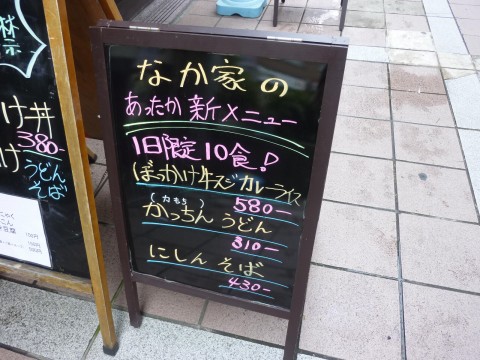 なか家の
あったか新メニュー
1日限定10食!
ぼっかけ牛スジカレーライス
580-
(力もち)
かっちんうどん
310-
にしんそば
430-
禁
け丼
380-
け
うどん
そば